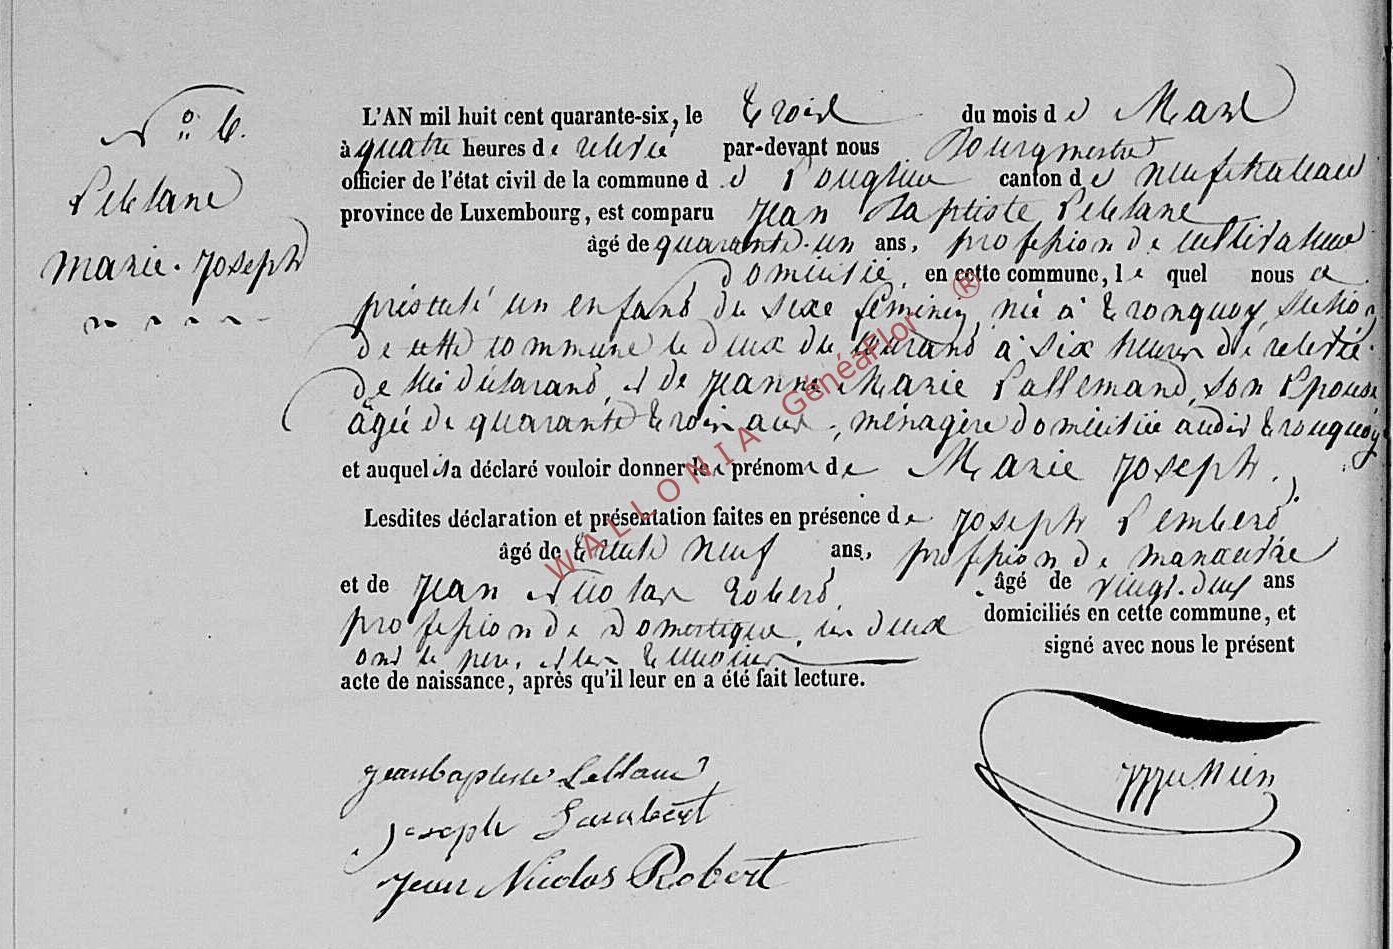 N° 6.
Leblanc
Marie-Joseph
L'AN mil huit cent quarante-six, le trois du mois de Mars
à quatre heures de relevée par-devant nous Bourgmestre
officier de l'état civil de la commune de Longlier canton de Neufchateau
province de Luxembourg, est comparu Jean Baptiste Leblanc
âgé de quarante-un ans, profession de cultivateur
domicilié en cette commune, lequel nous a
présenté un enfant du sexe féminin, né à tronquoy, section
de cette commune le deux du courant à six heures de relevée
de lui déclarant, et de Jeanne Marie Lallemand, son Epouse
âgée de quarante trois ans, ménagère domiciliée audit tronquoy
et auquel il a déclaré vouloir donner les prénoms de Marie Joseph.
Lesdites déclaration et présentation faites en présence de Joseph Lambert
âgé de trente neuf ans, profession de manoeuvre
et de Jean Nicolas Robert, âgé de vingt-deux ans
profession de Domestique, les deux domiciliés en cette commune, et
ont le père, et les témoins signé avec nous le présent
acte de naissance, après qu'il leur en a été fait lecture.
jeanbaptiste Leblanc
Joseph Lambert
Jean Nicolas Robert
WALLONIA GénéaFlor ®